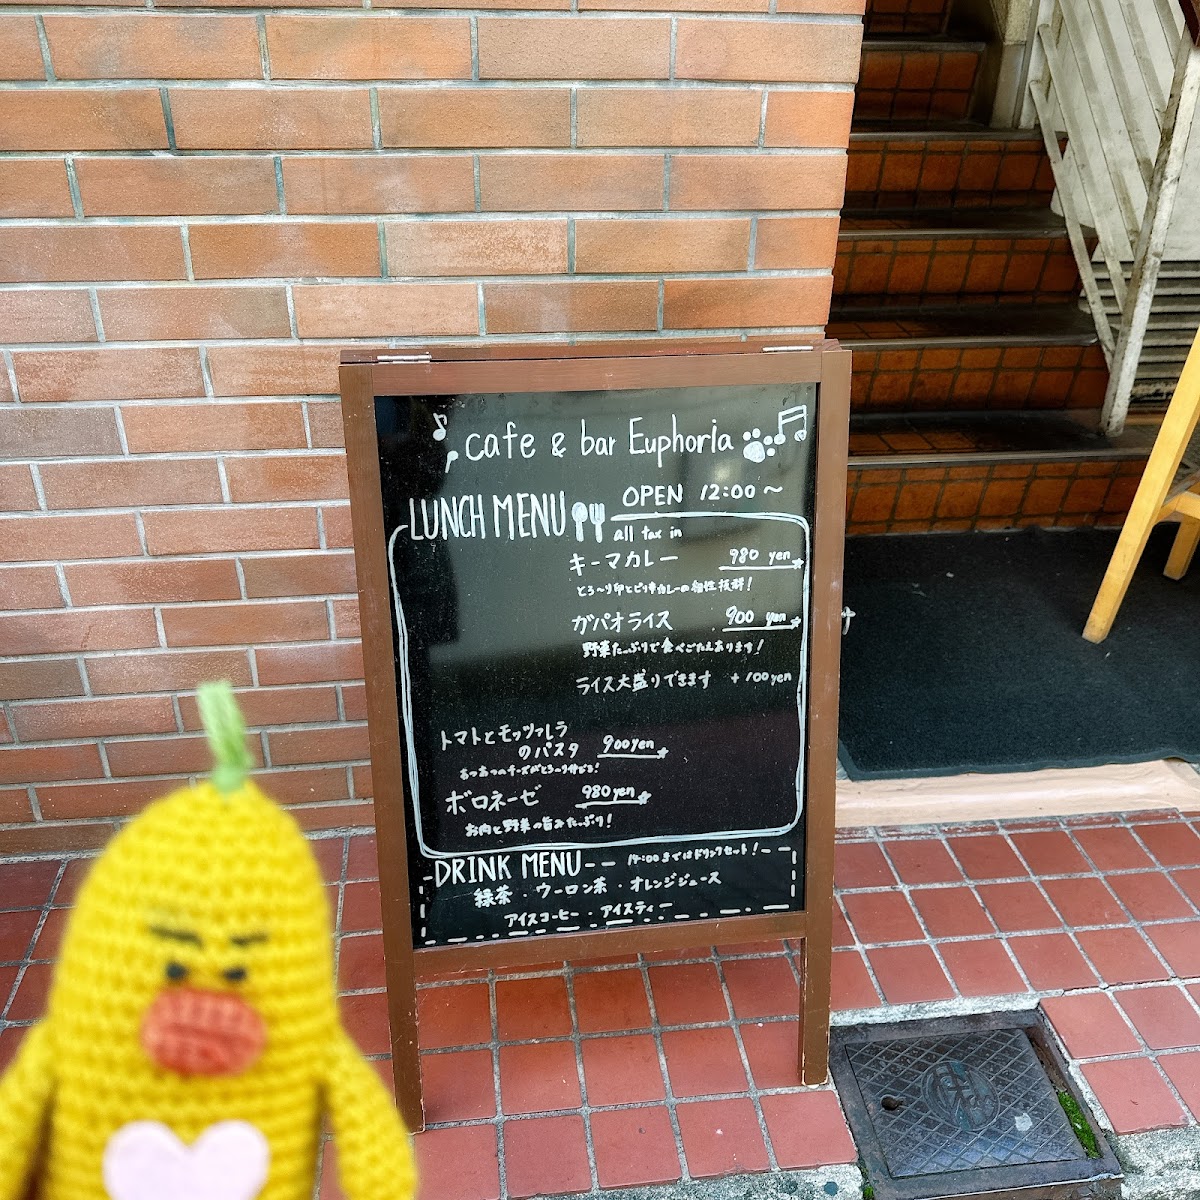 cafe & bar Euphoria
LUNCH MENU
OPEN 12:00 〜
all tax in
キーマカレー 980 yen
とろ〜り卵とピリ辛カレーの相性抜群!
ガパオライス 900 yen
野菜たっぷりで食べごたえあります!
ライス大盛りできます +100yen
トマトとモッツァレラ
のパスタ 900yen
あつあつのチーズがとろ〜り伸びる!
ボロネーゼ 980yen
お肉と野菜の旨みたっぷり!
DRINK MENU 14:00まではドリンクセット!
緑茶・ウーロン茶・オレンジジュース
アイスコーヒー・アイスティー